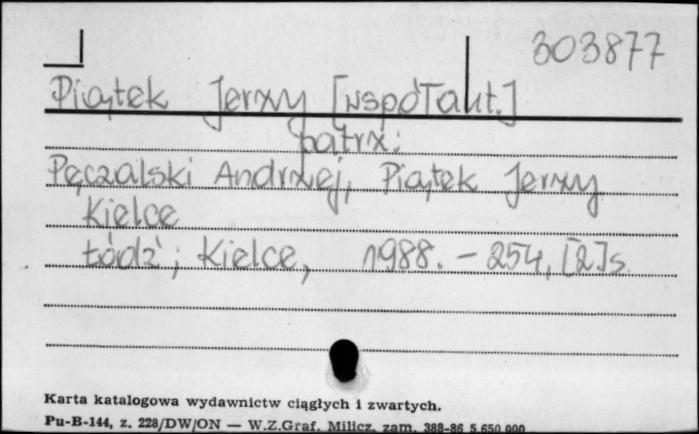 303877
Piątek Jerzy [współaut.]
patrz:
Pęczalski Andrzej, Piątek Jerzy
Kielce
Łódź; Kielce, 1988. - 254, [2] s
Karta katalogowa wydawnictw ciągłych i zwartych.
Pu-B-144, z. 228/DW/ON — W.Z.Graf. Milicz, zam. 388-86 5.650 000